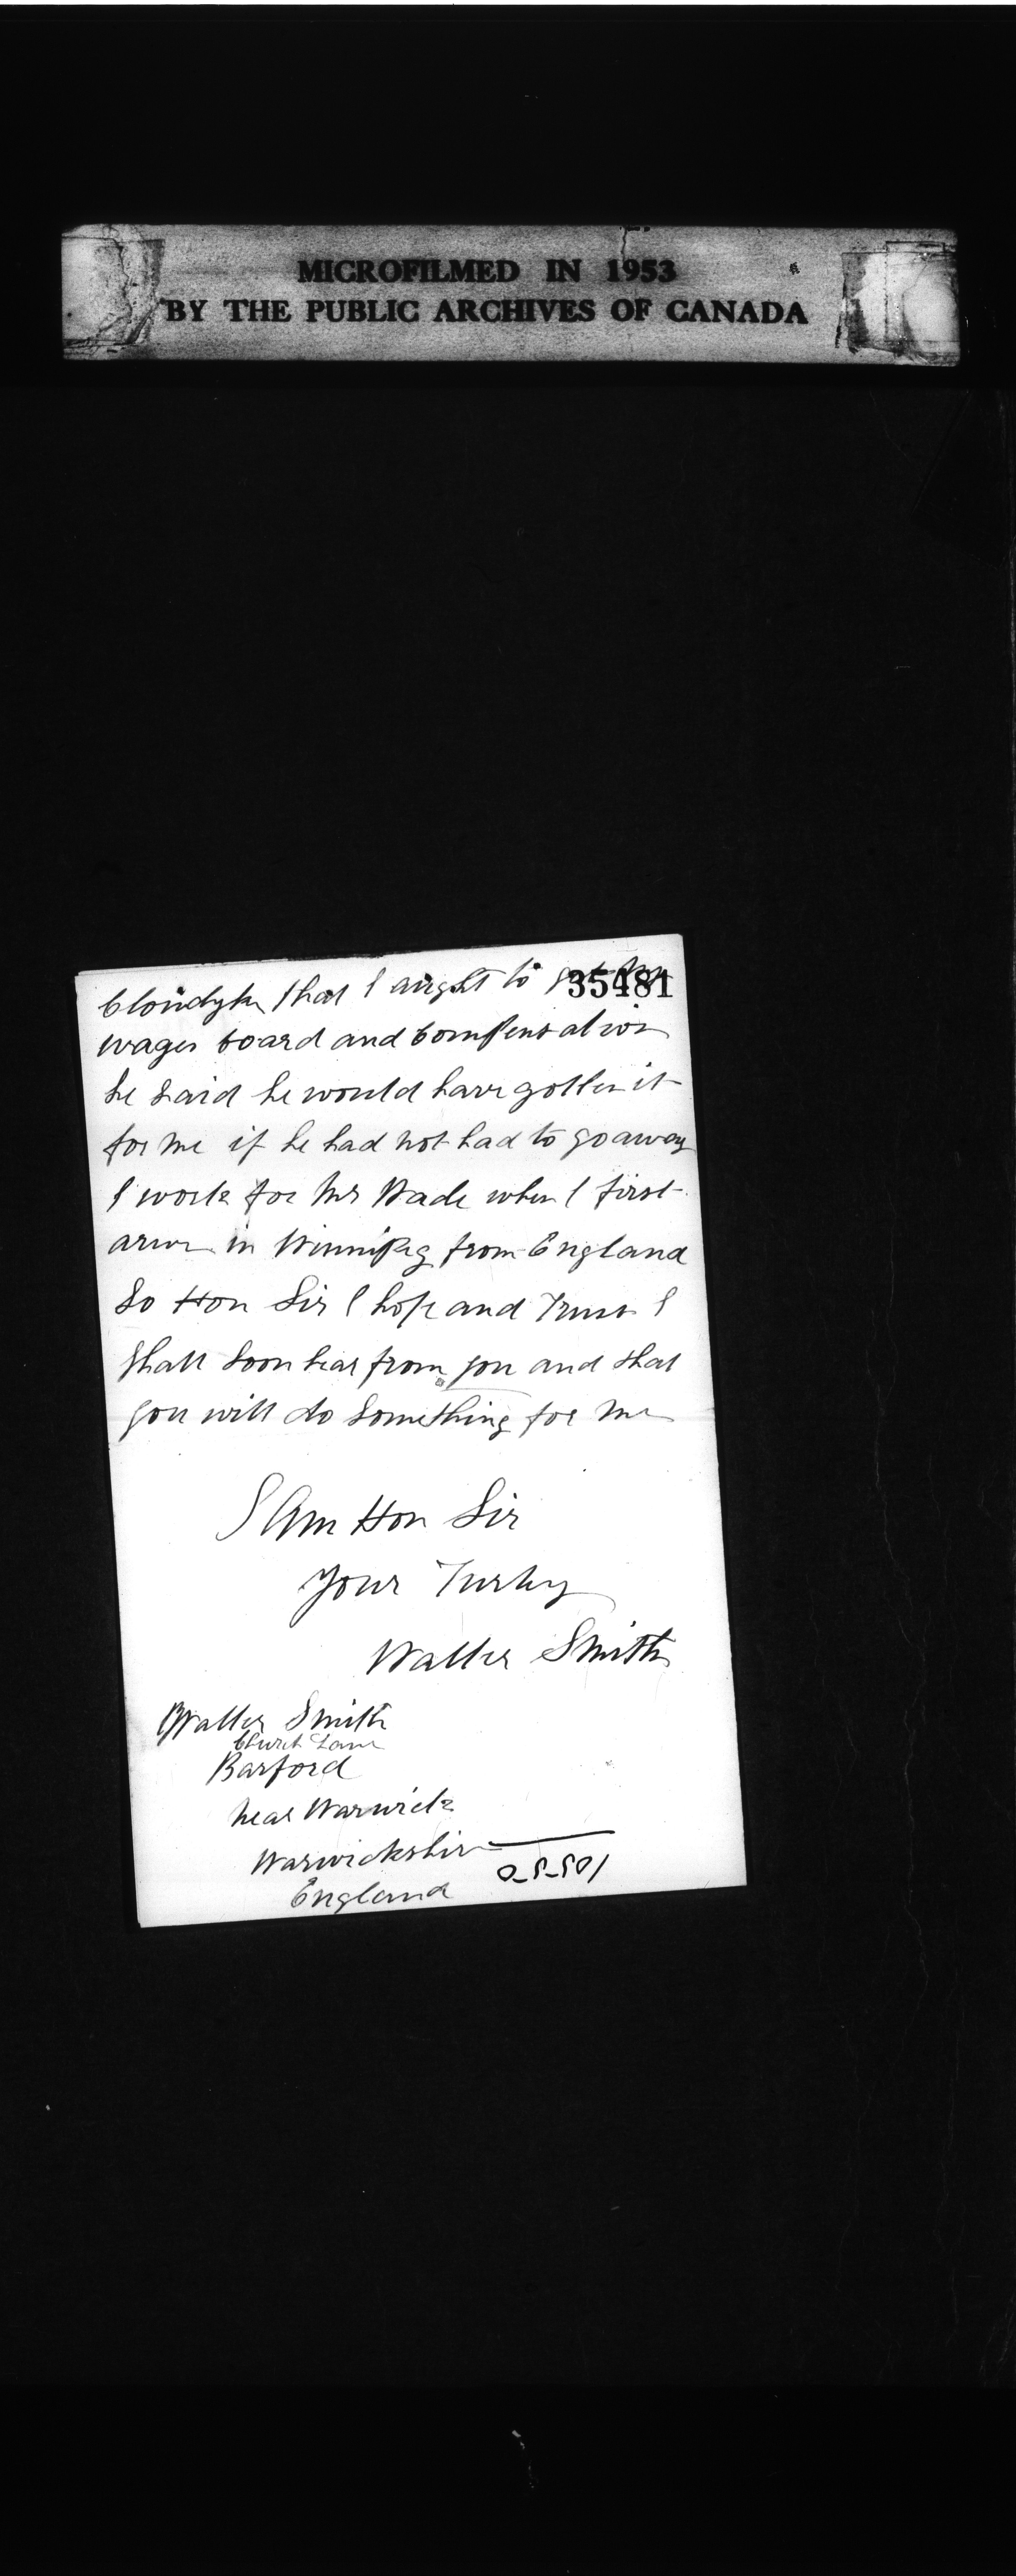 MICROFILMED IN 1953
BY THE PUBLIC ARCHIVES OF CANADA
35481
Clondyke that I aught to get my
wages board and Compensation
he said he would have gotten it
for me if he had not had to go away
I work for Mr Wade when I first
arive in Winnipeg from England
So Hon Sir I hope and Trust I
Shall Soon hear from you and that
you will do Something for me
I Am Hon Sir
Your Trusly
Walter Smith
Walter Smith
Church Lane
Barford
near Warwick
Warwickshire
England